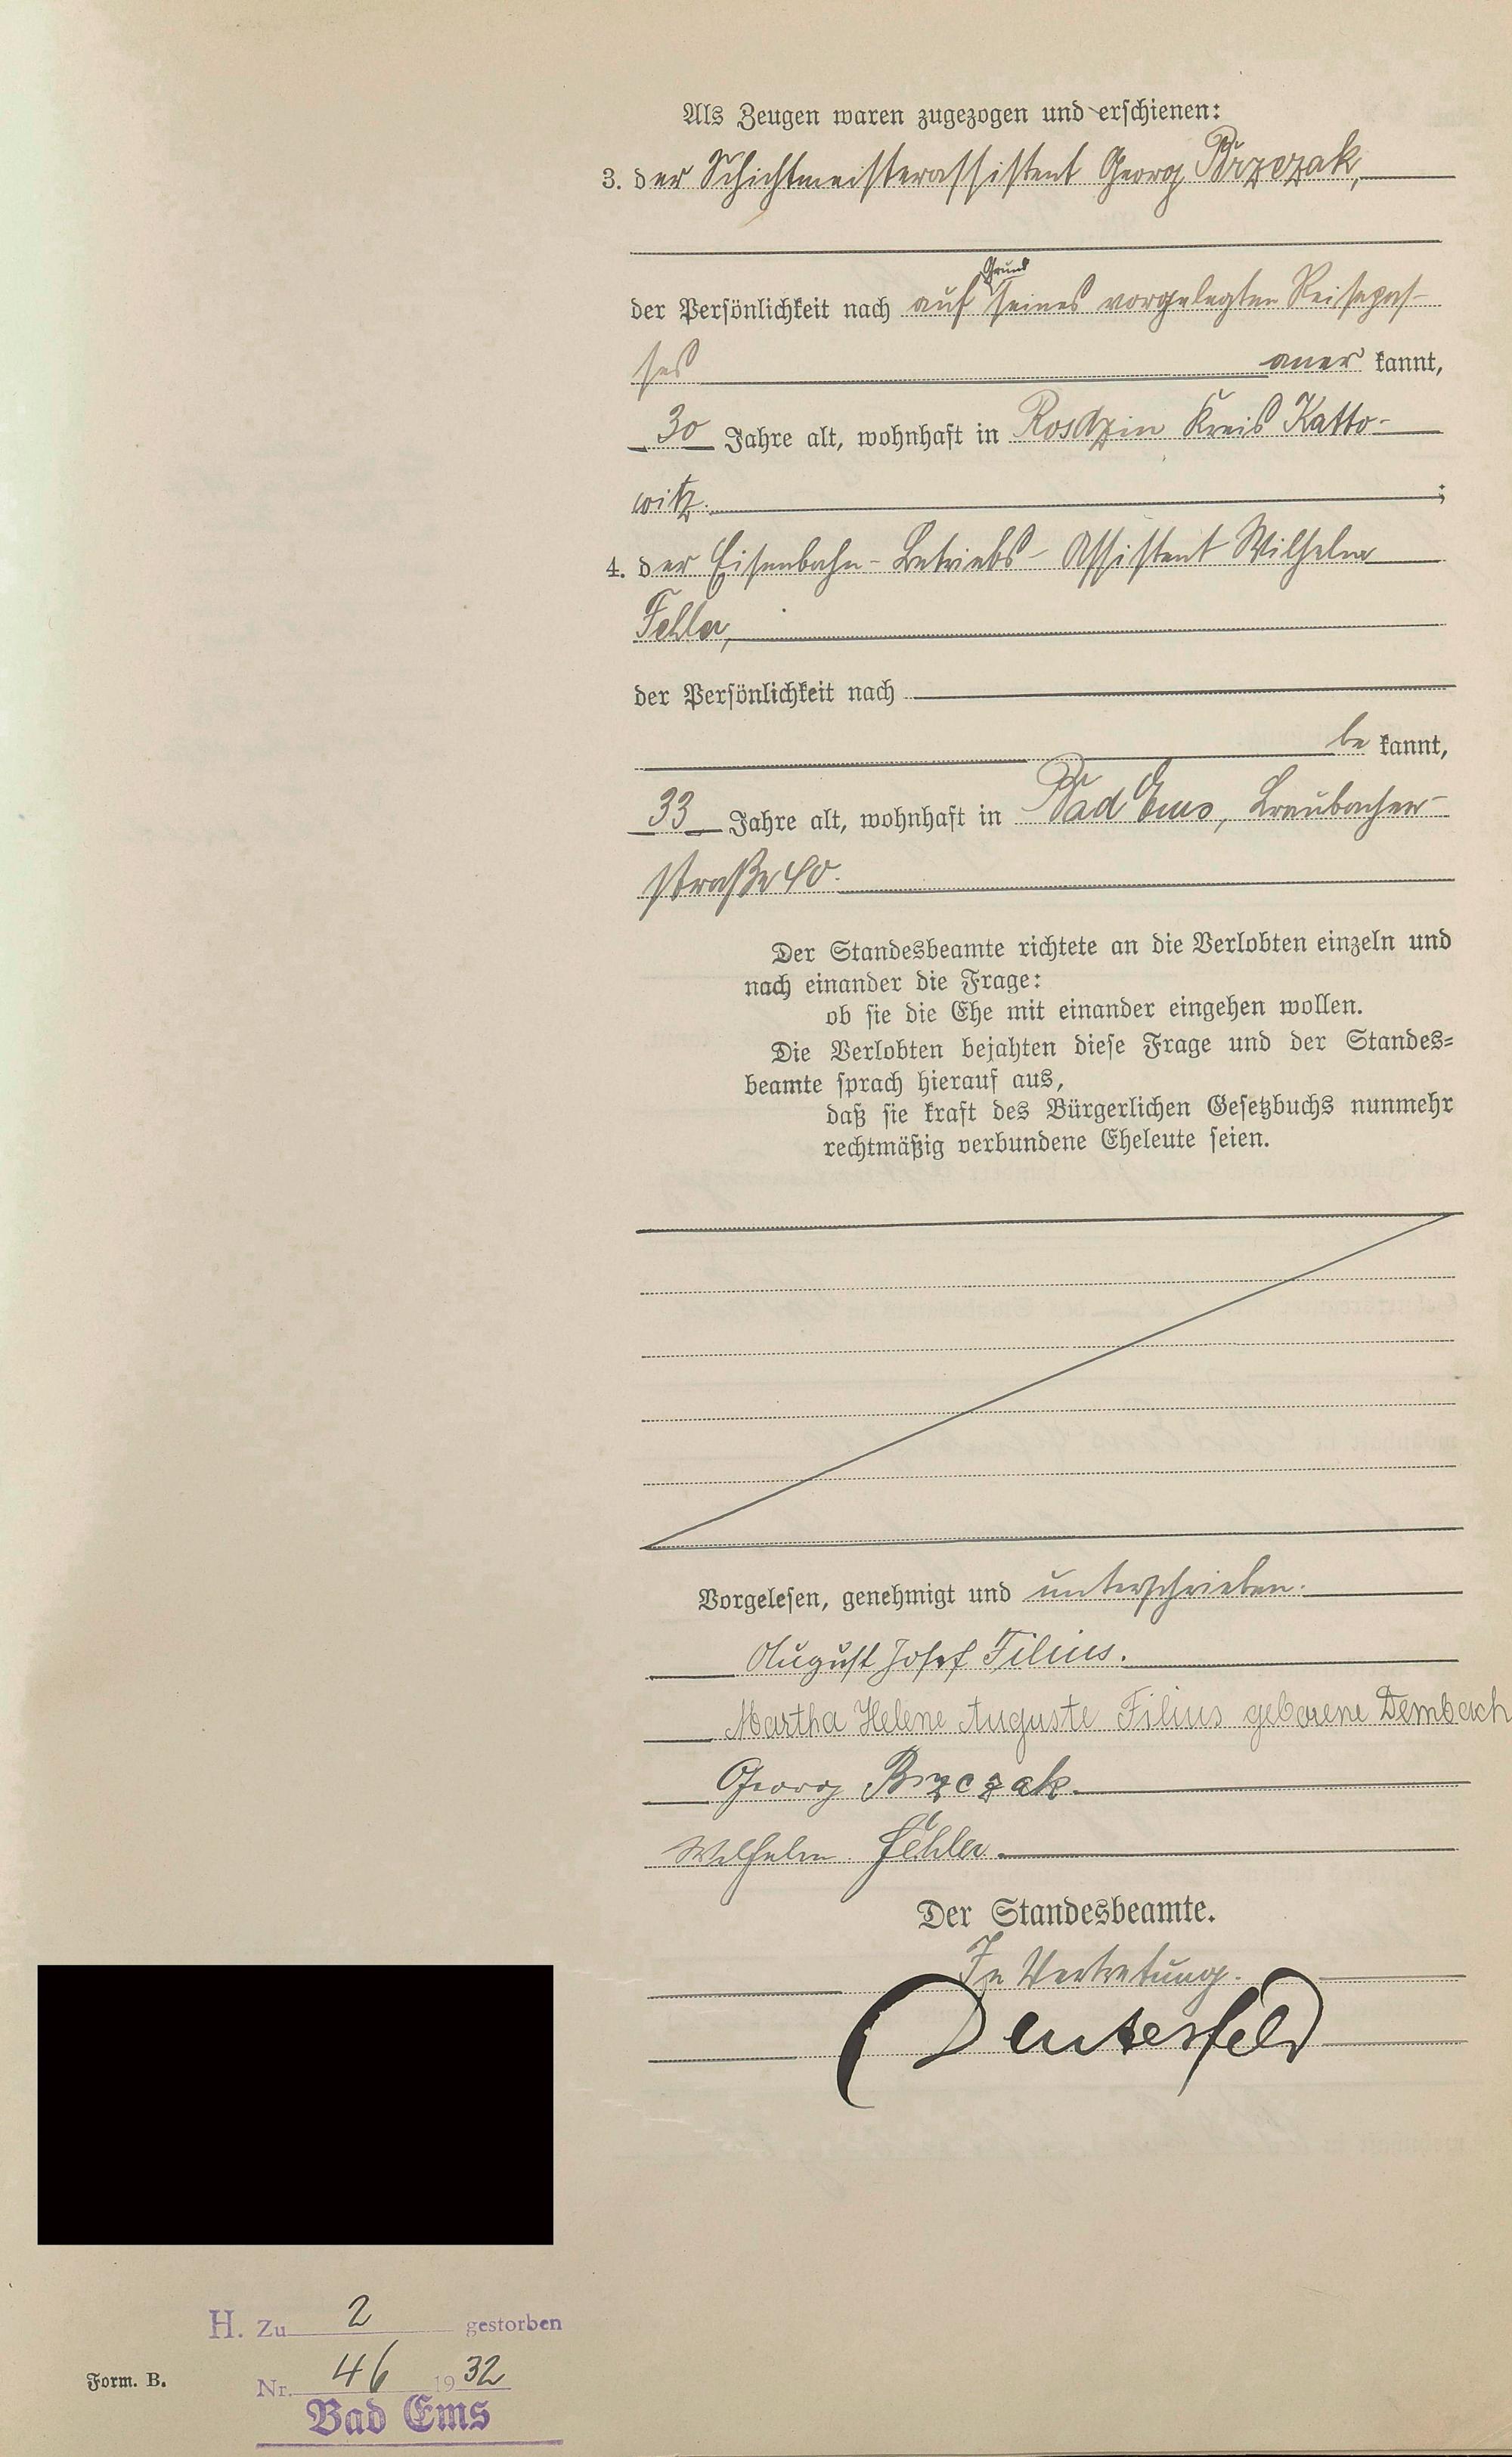 Als Zeugen waren zugezogen und erschienen:
3. der Schichtmeisterassistent Georg Brzczak,
Grund
der Persönlichkeit nach auf seines vorgelegten Reisepas-
ses aner kannt,
30 Jahre alt, wohnhaft in Rosdzin Kreis Katto-
witz. ;
4. der Eisenbahn-Betriebs-Assistent Wilhelm
Fehler,
der Persönlichkeit nach
be kannt,
33 Jahre alt, wohnhaft in Bad Ems, Braubacher-
straße 40.
Der Standesbeamte richtete an die Verlobten einzeln und
nach einander die Frage:
ob sie die Ehe mit einander eingehen wollen.
Die Verlobten bejahten diese Frage und der Standes-
beamte sprach hierauf aus,
daß sie kraft des Bürgerlichen Gesetzbuchs nunmehr
rechtmäßig verbundene Eheleute seien.
Vorgelesen, genehmigt und unterschrieben.
August Josef Filius.
Martha Helene Auguste Filius geborene Dembach
Georg Brzczak.
Wilhelm Fehler.
Der Standesbeamte.
In Vertretung.
Deusterfeld
H. Zu 2 gestorben
Form. B. Nr. 46 1932
Bad Ems